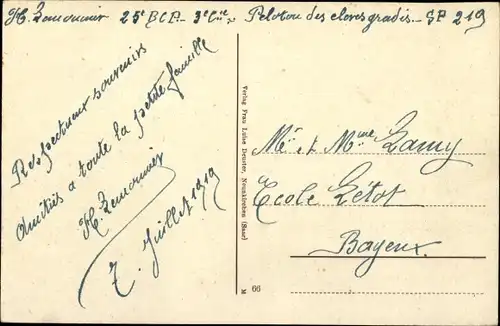 H. Lemonnier 25e BCP. 3e Cie. Peloton des élèves gradés. SP 219
Respectueux souvenirs
amitiés à toute la petite famille
H. Lemonnier
7. Juillet 1919
Verlag Frau Luise Deuster, Neunkirchen (Saar)
M 66
Mr. et Mme Lamy
Ecole Létot
Bayeux.